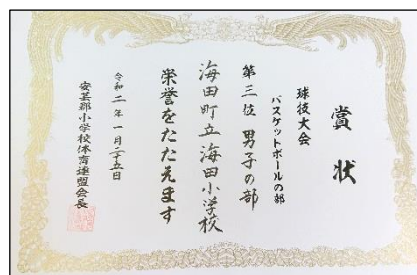 賞状
球技大会
バスケットボールの部
第三位 男子の部
海田町立海田小学校
栄誉をたたえます
令和二年一月二十五日
安芸郡小学校体育連盟会長